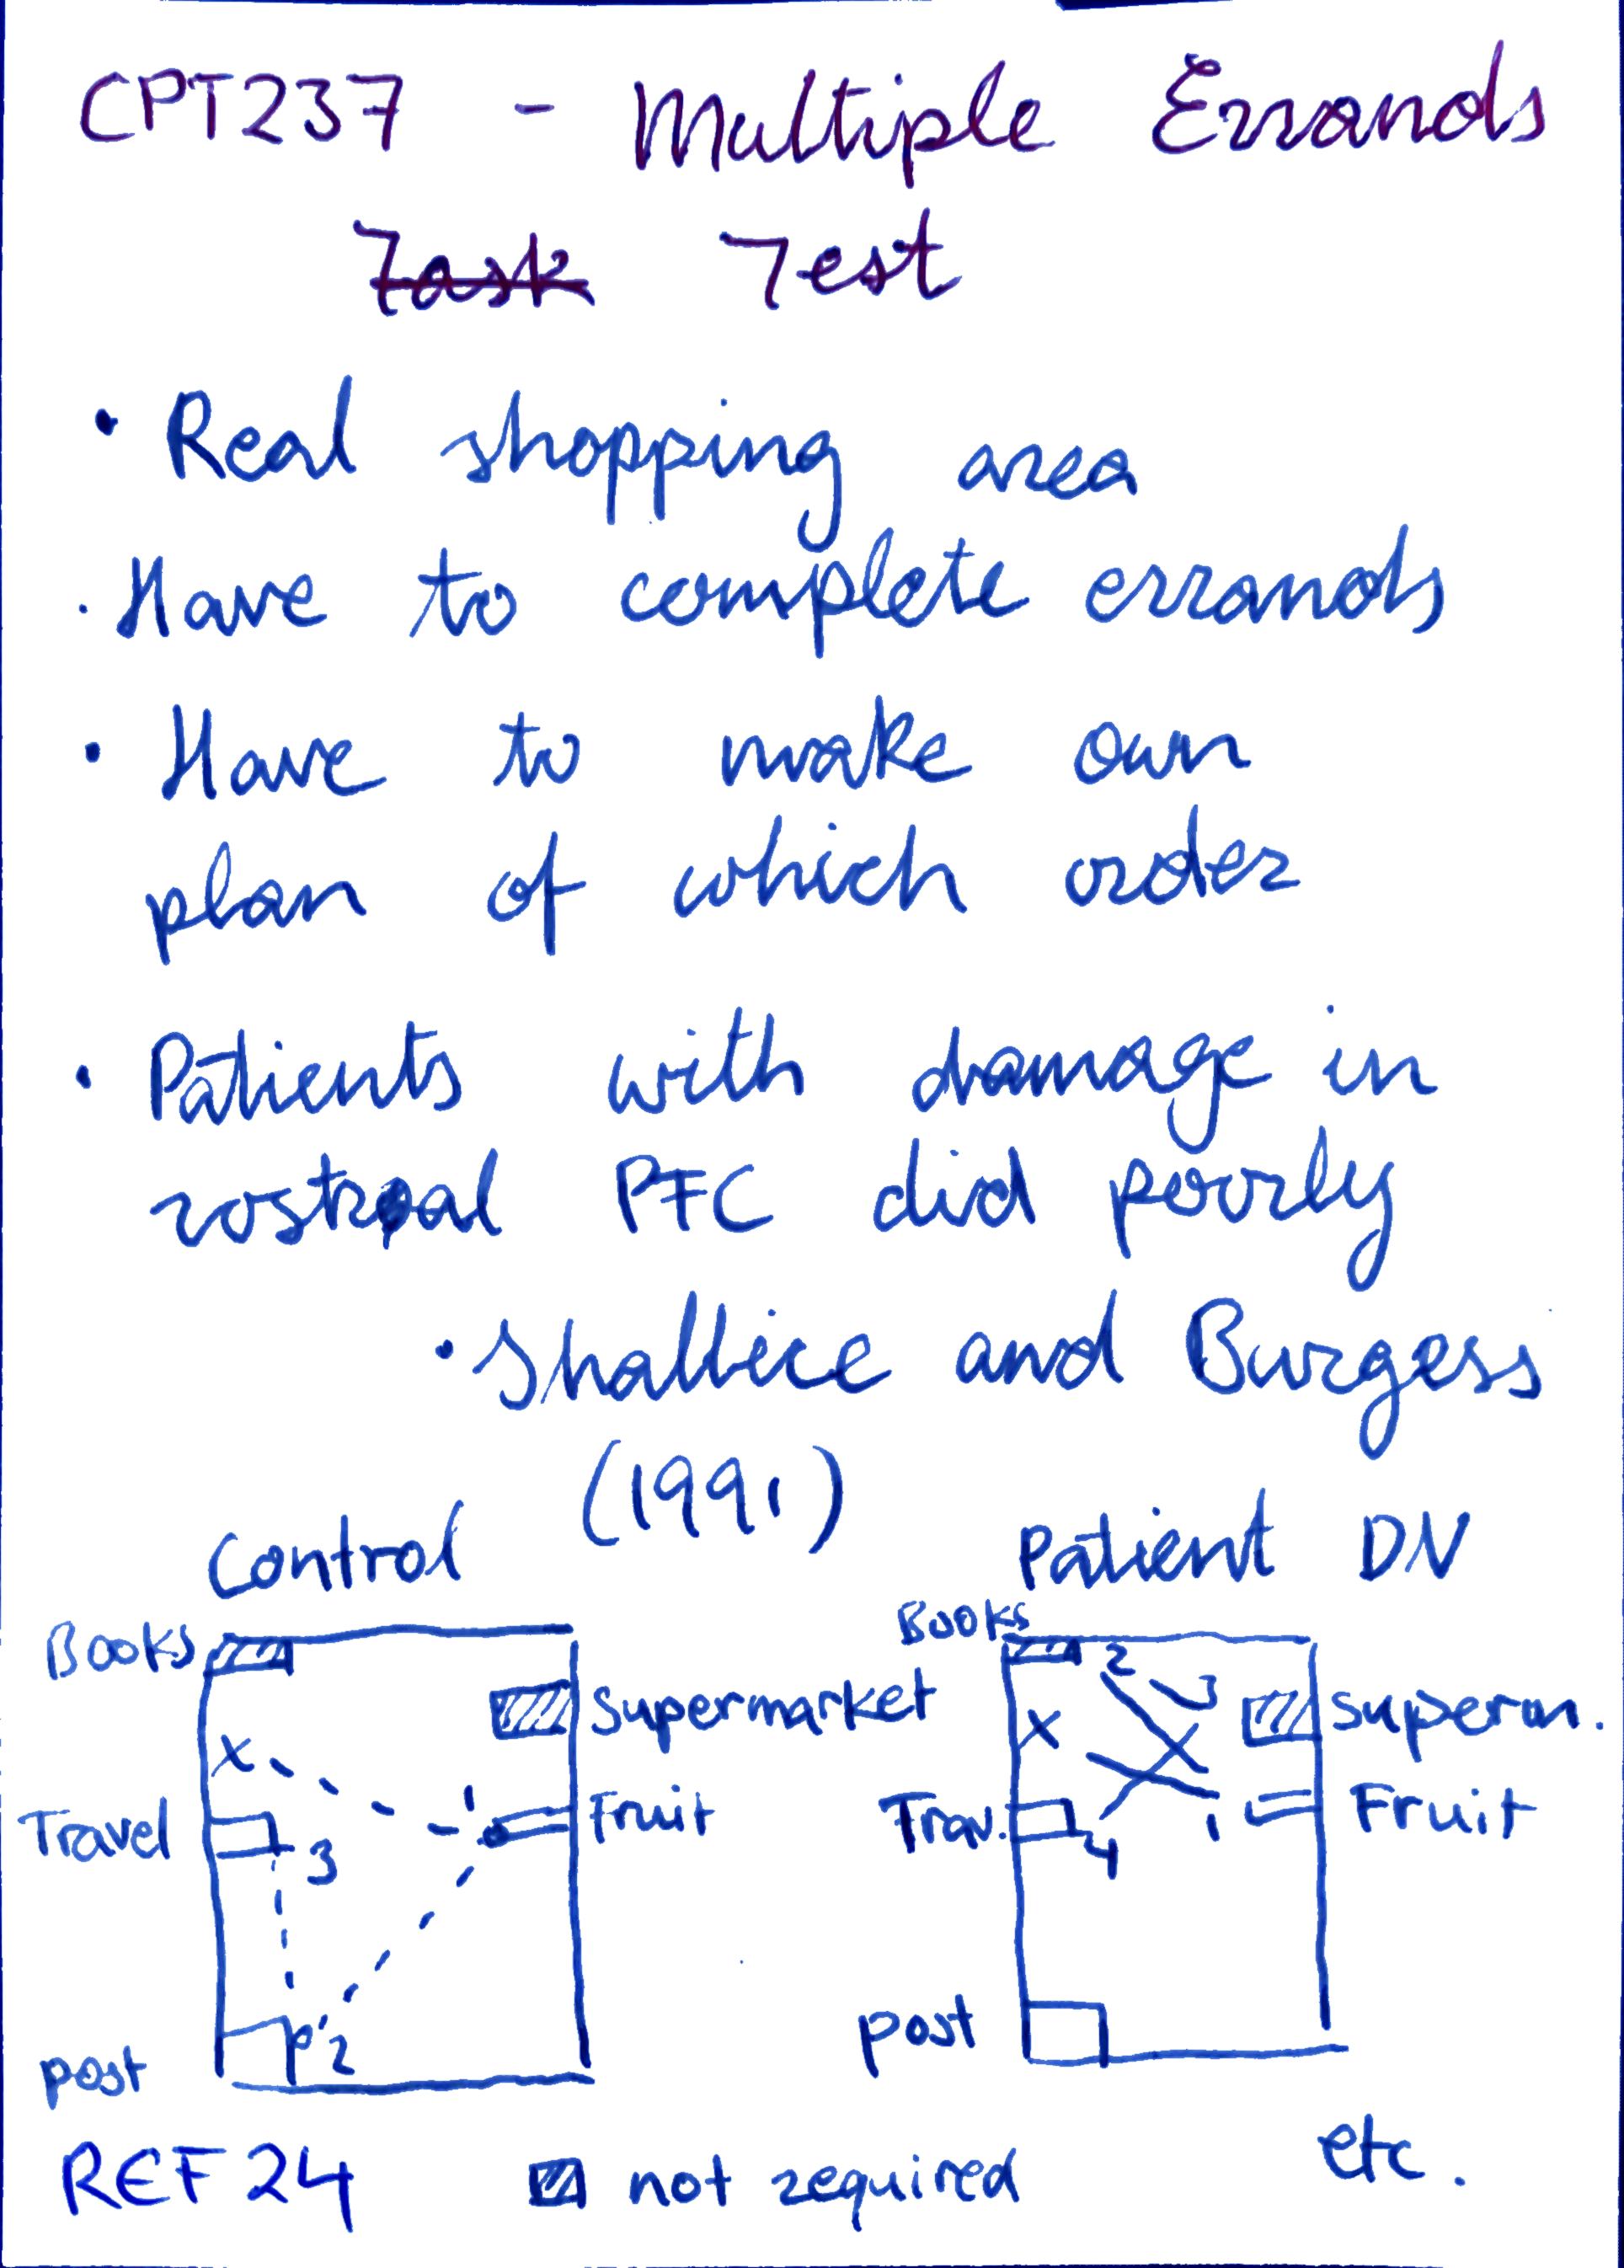 CPT237 - Multiple Errands
Task Test
• Real shopping area
• Have to complete errands
• Have to make own
plan of which order
• Patients with damage in
rostral PFC did poorly
• Shallice and Burgess
(1991)
Control
Patient DN
Books
Supermarket
x
1
Travel
3
Fruit
2
post
Books
2
3
x
Superm.
Trav.
4
1
Fruit
post
REF 24
not required
etc.